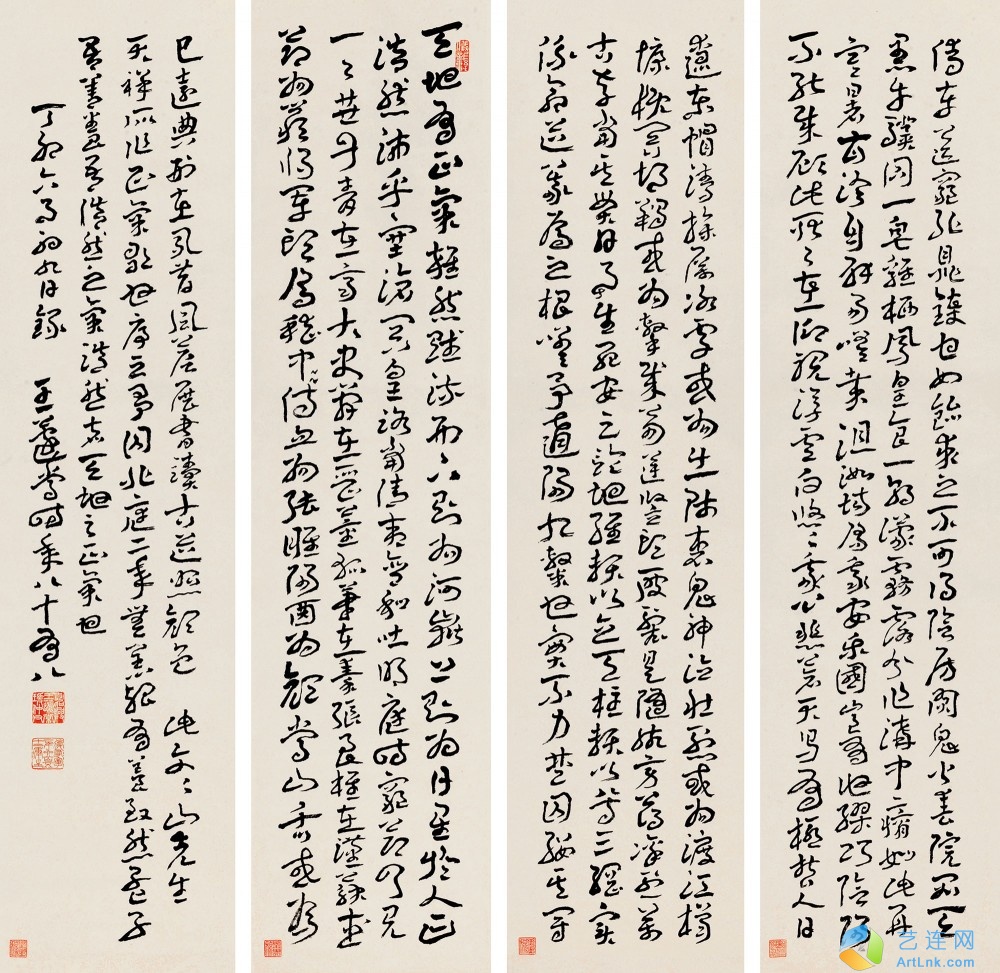 天地有正氣雜然賦流形下則為河嶽上則為日星於人曰
浩然沛乎塞滄冥皇路當清夷含和吐明庭時窮節乃見
一一垂丹青在齊太史簡在晉董狐筆在秦張良椎在漢蘇武
節為嚴將軍頭為嵇中侍血為張睢陽齒為顏常山舌或為
遼東帽清操厲冰雪或為出師表鬼神泣壯烈或為渡江楫
慷慨吞胡羯或為擊賊笏逆豎頭破裂是氣所旁薄凜烈萬
古存當其貫日月生死安足論地維賴以立天柱賴以尊三綱實
係命道義為之根嗟予遘陽九隸也實不力楚囚纓其冠
傳車送窮北鼎鑊甘如飴求之不可得陰房闐鬼火春院閟天
黑牛驥同一皂雞棲鳳皇食一朝濛霧露分作溝中瘠如此再
寒暑百沴自辟易嗟哉沮洳場為我安樂國豈有他繆巧陰陽
不能賊顧此耿耿在仰視浮雲白悠悠我心悲蒼天曷有極哲人日
已遠典刑在夙昔風簷展書讀古道照顏色 此文文山先生
天祥所作正氣歌也序云予囚北庭二年無恙是殆有養致然爾孟子
曰吾善養吾浩然之氣浩然者天地之正氣也
丁卯六月初九日錄 王蘧常時年八十有八
艺连网
ArtLnk.com